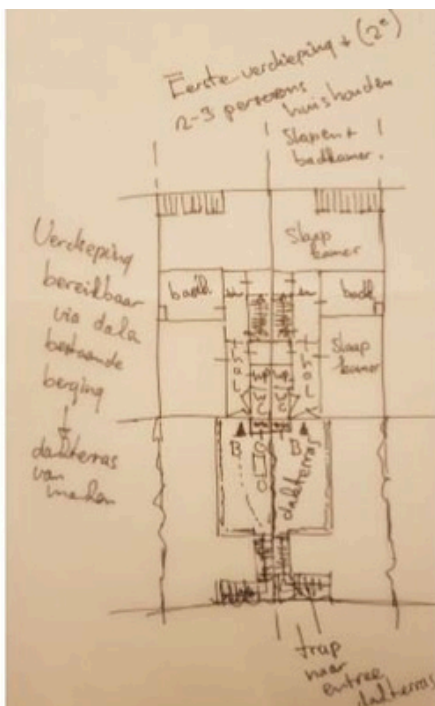 Eerste verdieping + (2e)
2-3 persoons
huishouden
Slapen +
badkamer.
Slaap
kamer
Verdieping
bereikbaar
via dak
bestaande
berging
dakterras
van
maken
badk
badk
Slaap
kamer
B
B
dakterras
trap
naar
entree
dakterras